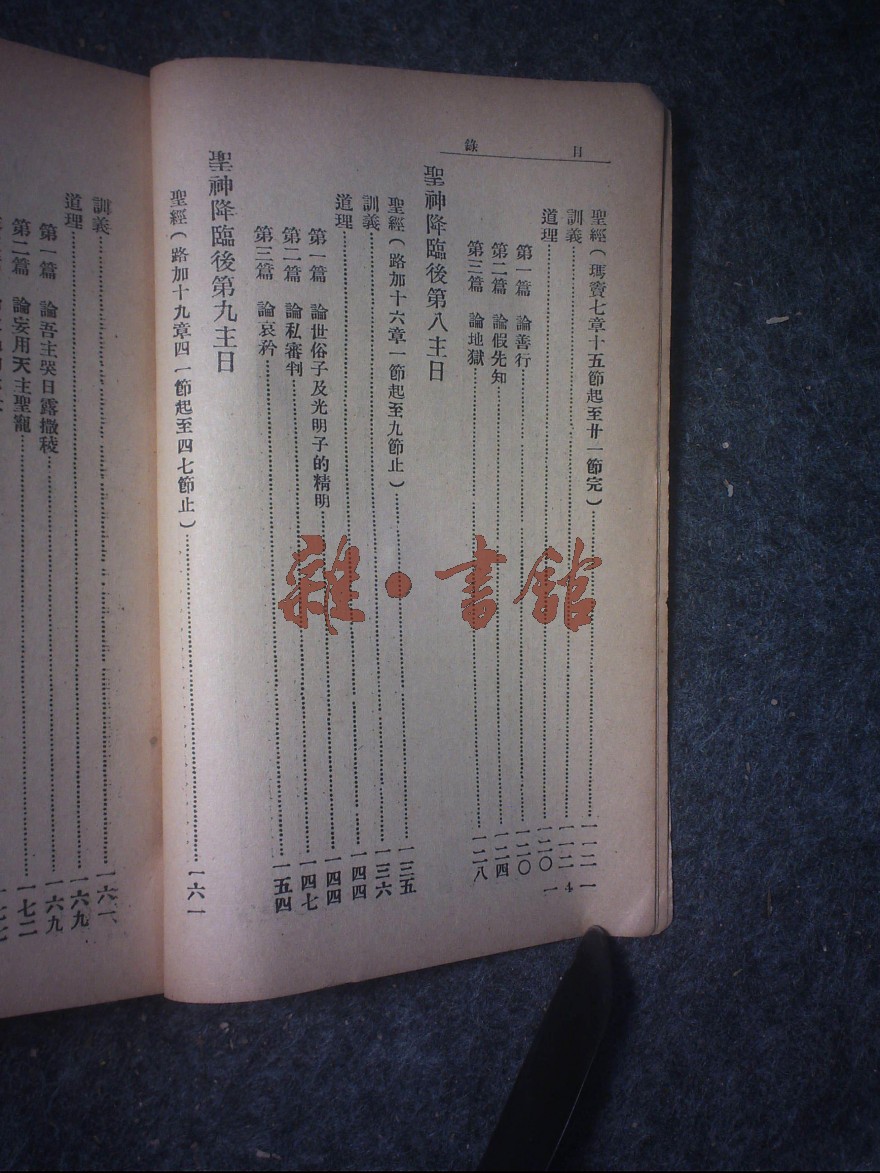 目錄
聖經(瑪竇七章十五節起至廿一節完)……一一一
訓義……一一二
道理……一二〇
第一篇 論善行……一二〇
第二篇 論假先知……一二四
第三篇 論地獄……一二八
聖神降臨後第八主日
聖經(路加十六章一節起至九節止)……一三五
訓義……一三六
道理……一四四
第一篇 論世俗子及光明子的精明……一四四
第二篇 論私審判……一四七
第三篇 論哀矜……一五四
聖神降臨後第九主日
聖經(路加十九章四一節起至四七節止)……一六一
— 4 —
訓義……一六一
道理……一六九
第一篇 論吾主哭日露撒稜……一六九
第二篇 論妄用天主聖寵……一七二
雜·書館